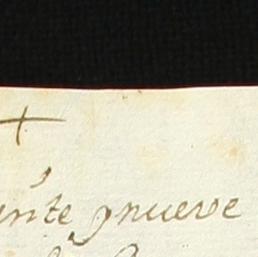 +
inte ynueve